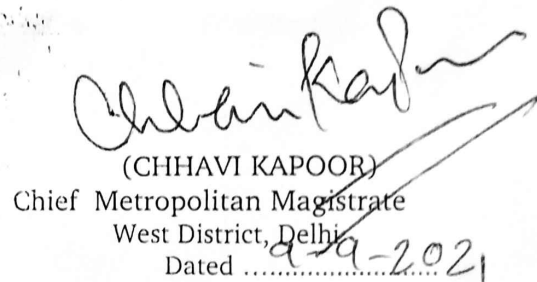 Chhavi Kapoor
(CHHAVI KAPOOR)
Chief Metropolitan Magistrate
West District, Delhi
Dated ..................... 9-9-2021